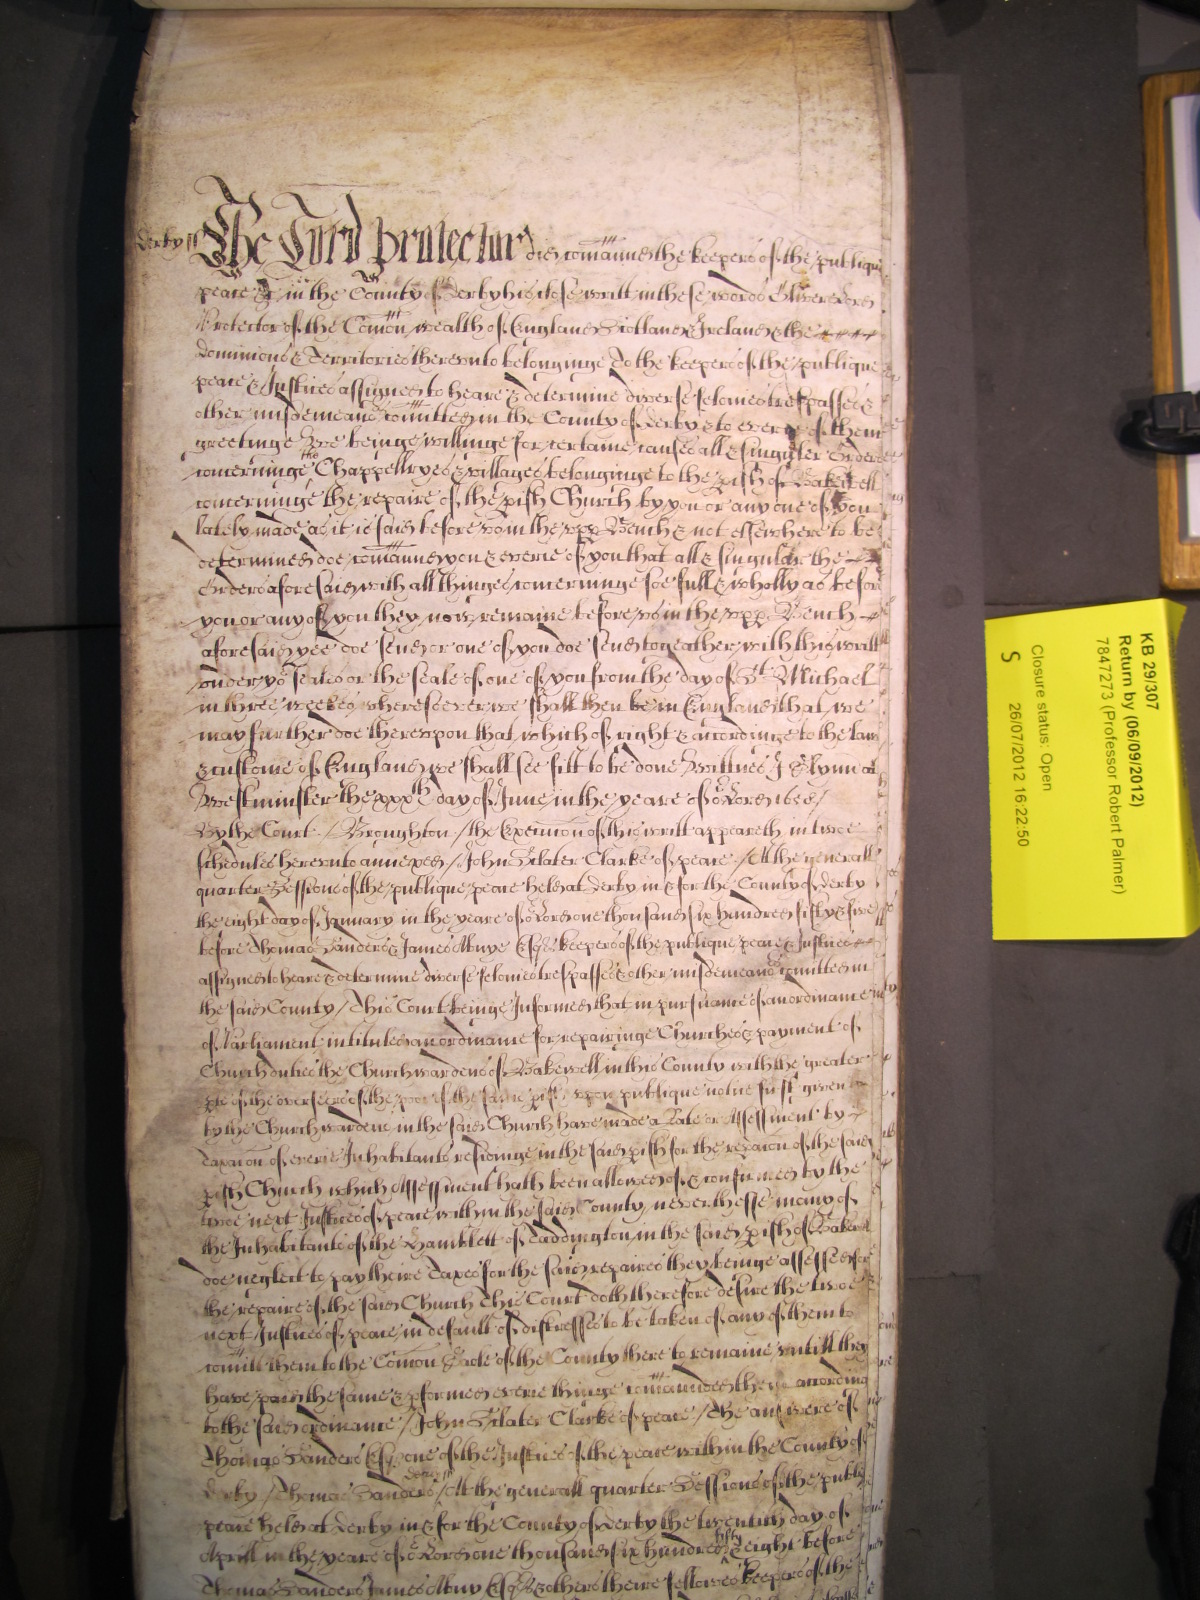 Derby ss
The Lord Protector did comaund the keepers of the publique
peace & in the County of Derby his close writt in these words Oliver Lord
Protector of the Comon wealth of England Scotland & Ireland & the
dominions & Territories thereunto belonginge To the keepers of the publique
peace & Justices assigned to heare & determine diverse felonies trespasses &
other misdemeanors comitted in the County of Derby & to every of them
greetinge Wee beinge willinge for certaine causes all & singuler Orders
concerninge the Chappellryes & villages belonginge to the pish of Bakewell
concerninge the repaire of the pish Church by you or any one of you
lately made as it is said before us in the upp Bench & not elsewhere to be
determined doe comaund you & everie of you that all & singuler the
Orders aforesaid with all thinges concerninge soe full & wholly as before
you or any of you they now remaine before us in the upp Bench
aforesaid yee doe send or one of you doe send togeather with this writt
under yor seales or the seale of one of you from the day of St Michael
in three weekes wheresoever we shall then be in England that we
may further doe thereupon that which of right & accordinge to the law
& custome of England we shall see fitt to be done Wittnes J Glynn at
Westminster the xxxth day of June in the yeare of or Lord
By the Court / Broughton / the Execucion of this writt appeareth in twoe
schedules hereunto annexed / John Clarke of peace / At the generall
quarter Sessions of the publique peace held at Derby in & for the County of Derby
the eight day of January in the yeare of or Lord one thousand six hundred fifty & five
before Thomas Sanders & James Abnye Esqrs keepers of the publique peace & Justices
assigned to heare & determine diverse felonies trespasses & other misdemeanors comitted in
the said County / This Court beinge Informed that in pursuance of an ordinance
of Parliament intituled an ordinance for repairinge Churches & payment of
Church duties the Churchwardens of Bakewell in this County with the greater
pte of the overseers of the poor of the same pish upon publique notice first given
by the Churchwardens in the said Church have made a Rate or Assessment by
Taxacon of everie Inhabitants residinge in the said pish for the repacon of the said
pish Church which Assessment hath been allowed of & confirmed by the
twoe next Justices of peace within the said County, neverthesse many of
the Inhabitants of the Hamblett of Taddington in the said pish of Bakewell
doe neglect to pay theire Taxes for the said repaires they beinge assessed for
the repaire of the said Church This Court doth therefore desire the twoe
next Justices of peace in default of distresses to be taken of any of them to
comitt them to the Comon Gaole of the County there to remaine untill they
have paid the same & pformed everie thinge comaunded them according
to the said ordinance / John Clarke of peace / The answere of
Thomas Sanders Esqr one of the Justices of the peace within the County of
Derby / Thomas Sanders / At the generall quarter Sessions of the publique
peace held at Derby in & for the County of Derby the twentith day of
Aprill in the yeare of or Lord one thousand six hundred fifty & eight before
Thomas Sanders James Abny Esqrs & others theire fellowes keepers of the
KB 29/307
Return by (06/09/2012)
7847273 (Professor Robert Palmer)
Closure status: Open
S 26/07/2012 16:22:50